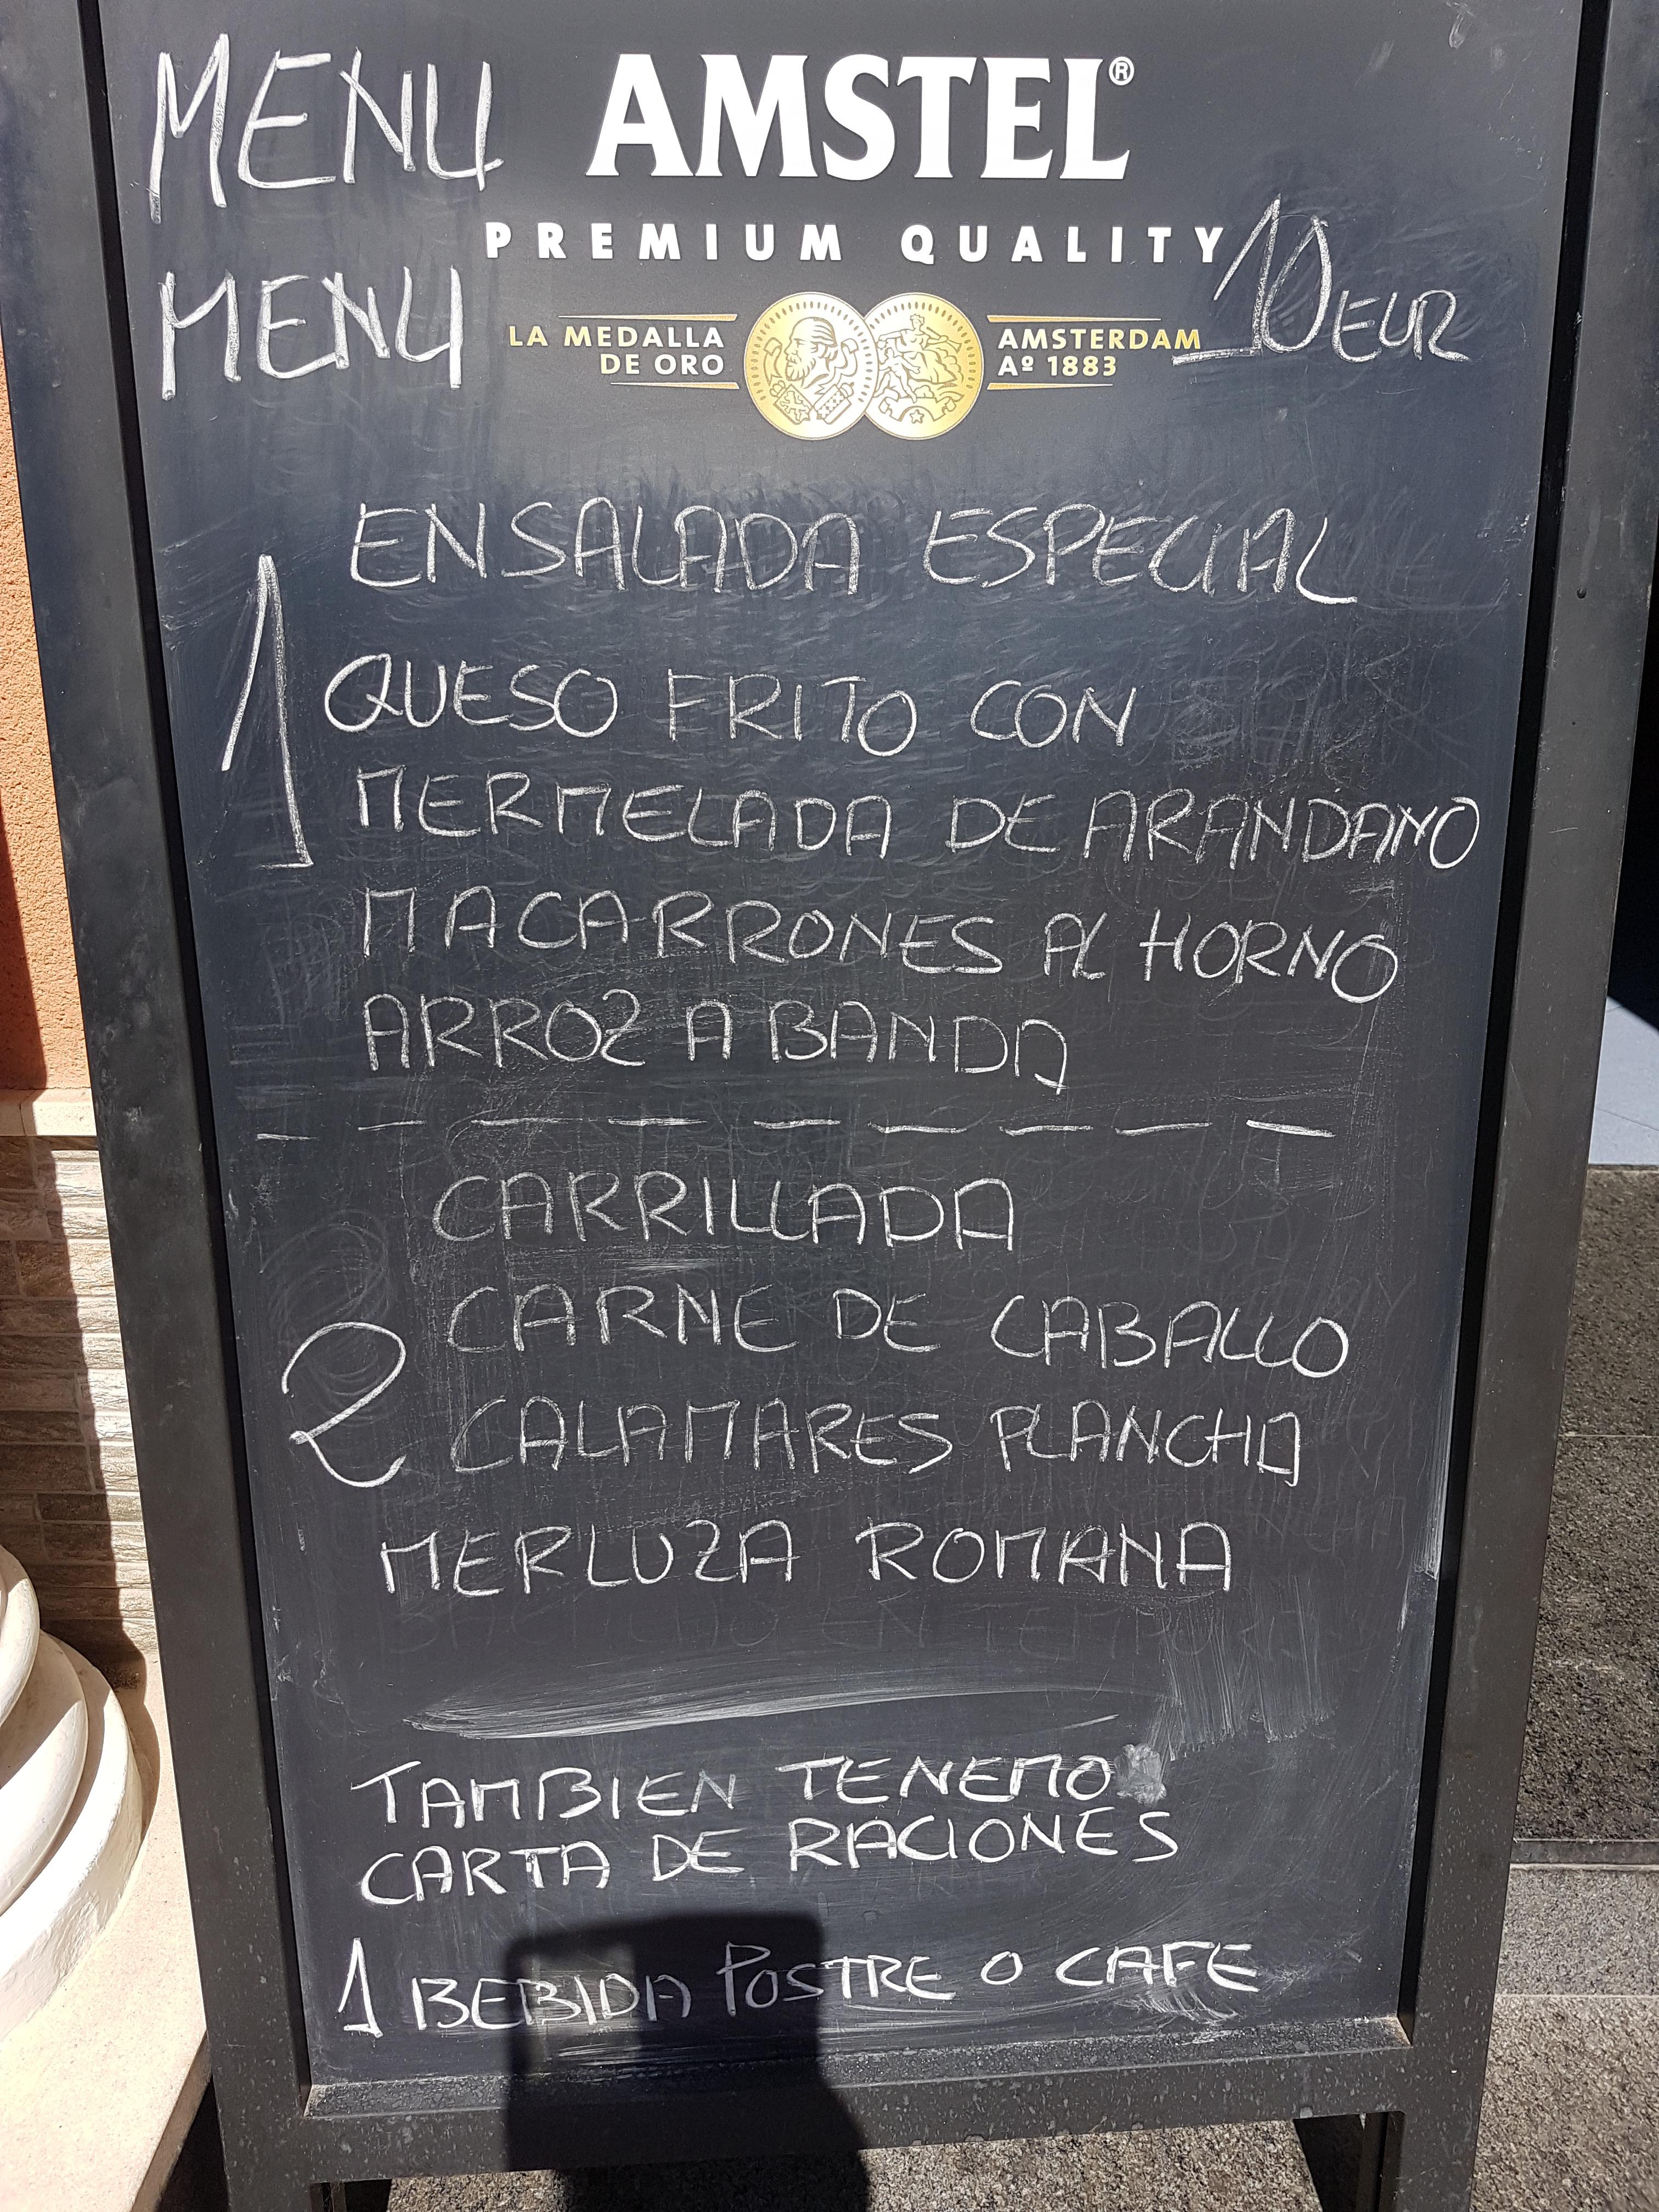 MENU
AMSTEL®
PREMIUM QUALITY
MENU
LA MEDALLA
DE ORO
AMSTERDAM
Aº 1883
10 EUR
ENSALADA ESPECIAL
1
QUESO FRITO CON
MERMELADA DE ARANDANO
MACARRONES AL HORNO
ARROZ A BANDA
CARRILLADA
CARNE DE CABALLO
2
CALAMARES PLANCHA
MERLUZA ROMANA
TAMBIEN TENEMO
CARTA DE RACIONES
1 BEBIDA POSTRE O CAFE